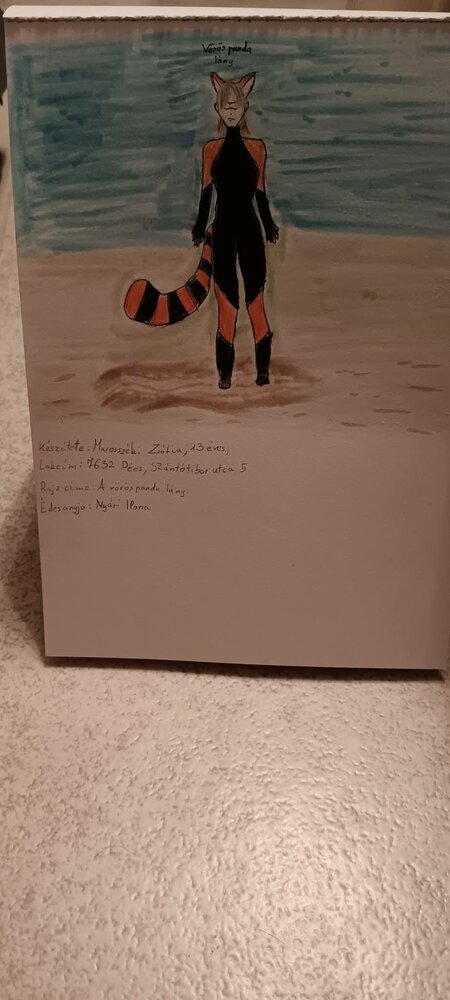 Vörös panda
lány
Készítette: Marosszéki Zófia, 13 éves,
Lakcím: 7632 Pécs, Szántó Tibor utca 5
Rajz címe: A vörös panda lány.
Édesanyja: Nyári Ilona